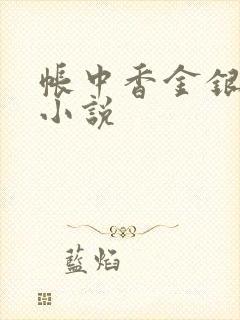 帳中香金銀
小說
藍焰